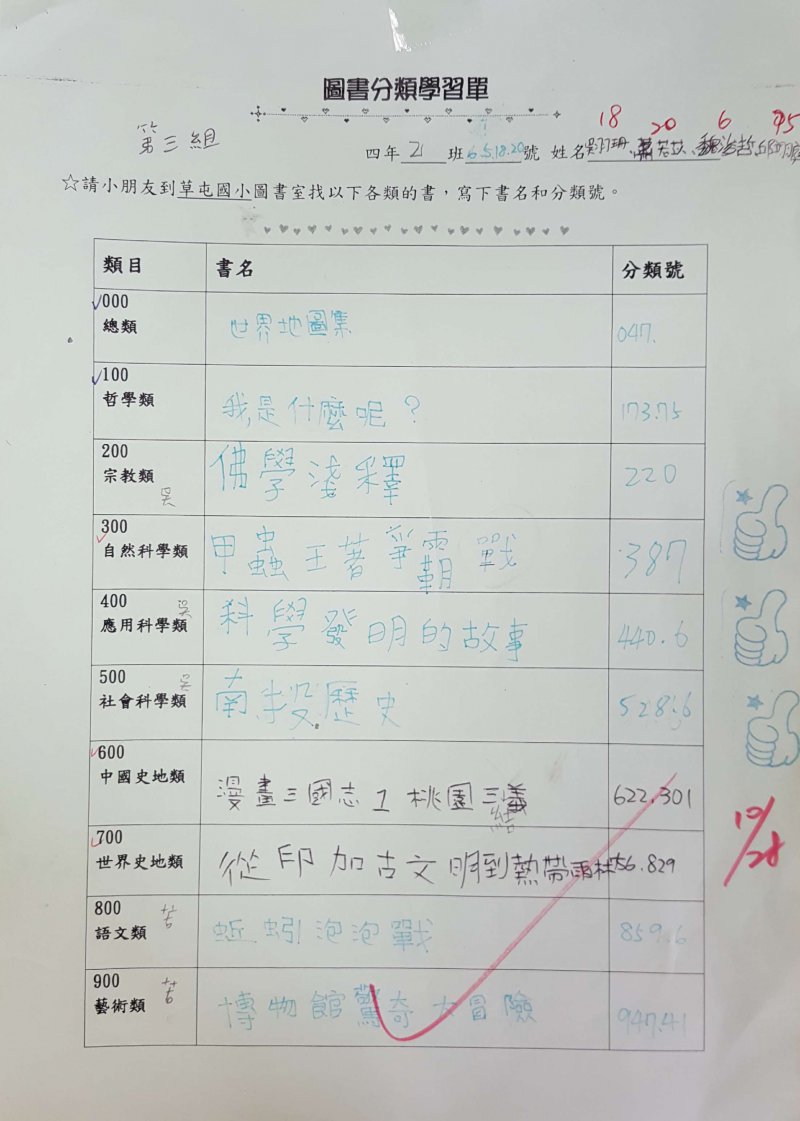 圖書分類學習單
18 20 6 5
第三組
四年 21 班 6.5.18.20 號 姓名
☆請小朋友到草屯國小圖書室找以下各類的書，寫下書名和分類號。
類目 書名 分類號
000 總類 世界地圖集 047.
100 哲學類 我是什麼呢？ 173.75
200 宗教類 吳 佛學淺釋 220
300 自然科學類 甲蟲王者爭霸戰 387
400 應用科學類 吳 科學發明的故事 440.6
500 社會科學類 吳 南投歷史 528.6
600 中國史地類 漫畫三國志1 桃園三結義 622.301
700 世界史地類 從印加古文明到熱帶雨林 756.829
800 語文類 苦 蚯蚓泡泡戰 859.6
900 藝術類 苦 博物館驚奇大冒險 947.41
10/28